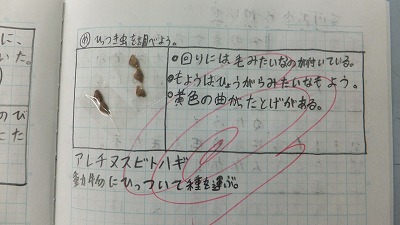 め ひっつき虫を調べよう。
•回りには毛みたいなのが付いている。
•もようはひょうがらみたいなもよう。
•黄色の曲がったとげがある。
アレチヌスビトハギ
動物にひっついて種を運ぶ。
に、
た。
のび